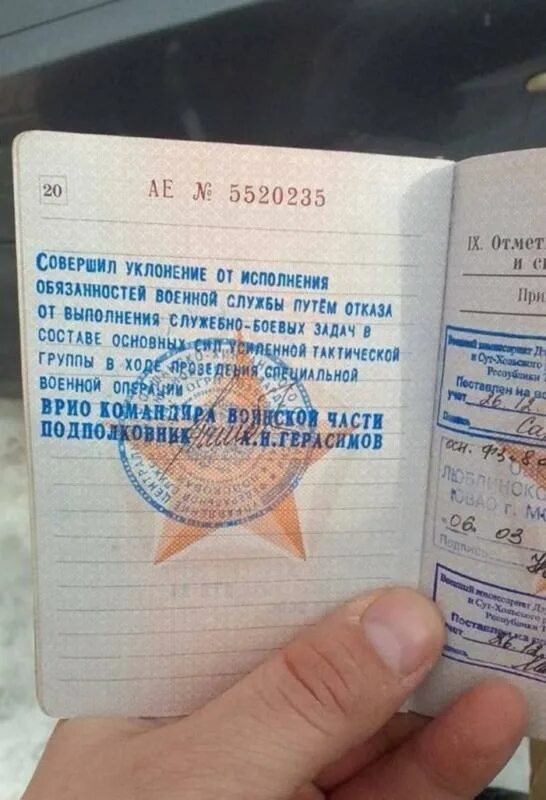 20
АЕ № 5520235
СОВЕРШИЛ УКЛОНЕНИЕ ОТ ИСПОЛНЕНИЯ
ОБЯЗАННОСТЕЙ ВОЕННОЙ СЛУЖБЫ ПУТЁМ ОТКАЗА
ОТ ВЫПОЛНЕНИЯ СЛУЖЕБНО-БОЕВЫХ ЗАДАЧ В
СОСТАВЕ ОСНОВНЫХ СИЛ УСИЛЕННОЙ ТАКТИЧЕСКОЙ
ГРУППЫ В ХОДЕ ПРОВЕДЕНИЯ СПЕЦИАЛЬНОЙ
ВОЕННОЙ ОПЕРАЦИИ
ВРИО КОМАНДИРА ВОИНСКОЙ ЧАСТИ
ПОДПОЛКОВНИК И.ГЕРАСИМОВ
IX. Отмет
и с
При
Военный комиссариат
и Сут-Хольского
Республики
Поставлен на во
учет 26.12.
Подпись
ЛЮБЛИНСКО
ЮВАО г. М
«06. 03
Подпись
Военный комиссариат
и Сут-Хольского
Республики
Поставлен на
учет 26.12